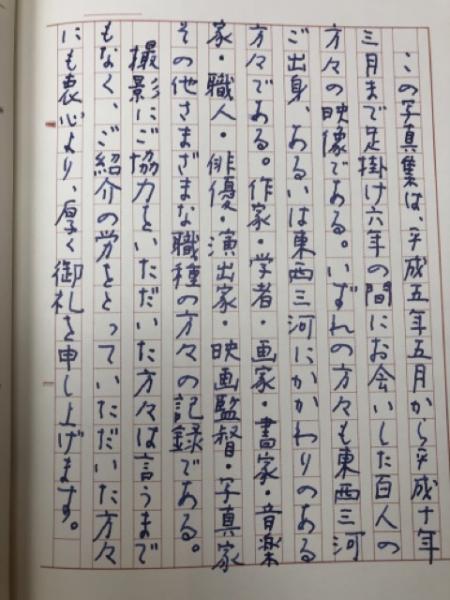 この写真集は、平成五年五月から平成十年
三月まで足掛け六年の間にお会いした百人の
方々の映像である。いずれの方々も東西三河
ご出身、あるいは東西三河にかかわりのある
方々である。作家・学者・画家・書家・音楽
家・職人・俳優・演出家・映画監督・写真家
その他さまざまな職種の方々の記録である。
撮影にご協力をいただいた方々は言うまで
もなく、ご紹介の労をとっていただいた方々
にも衷心より、厚く御札を申し上げます。